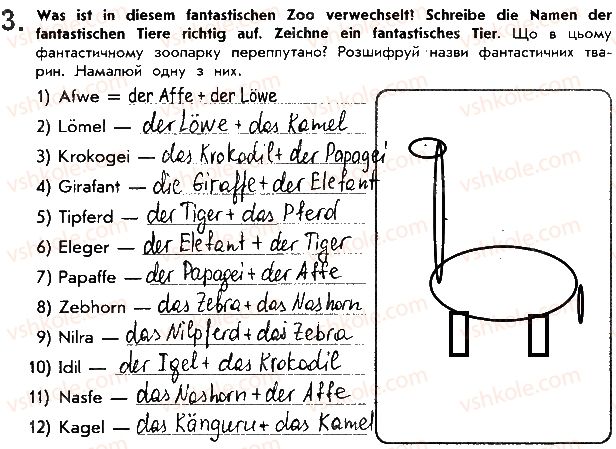 3. Was ist in diesem fantastischen Zoo verwechselt! Schreibe die Namen der
fantastischen Tiere richtig auf. Zeichne ein fantastisches Tier. Що в цьому
фантастичному зоопарку переплутано? Розшифруй назви фантастичних тва-
рин. Намалюй одну з них.
1) Afwe = der Affe + der Löwe
2) Lömel — der Löwe + das Kamel
3) Krokogei — das Krokodil + der Papagei
4) Girafant — die Giraffe + der Elefant
5) Tipferd — der Tiger + das Pferd
6) Eleger — der Elefant + der Tiger
7) Papaffe — der Papagei + der Affe
8) Zebhorn — das Zebra + das Nashorn
9) Nilra — das Nilpferd + das Zebra
10) Idil — der Igel + das Krokodil
11) Nasfe — das Nashorn + der Affe
12) Kagel — das Känguru + das Kamel
vshkole.com